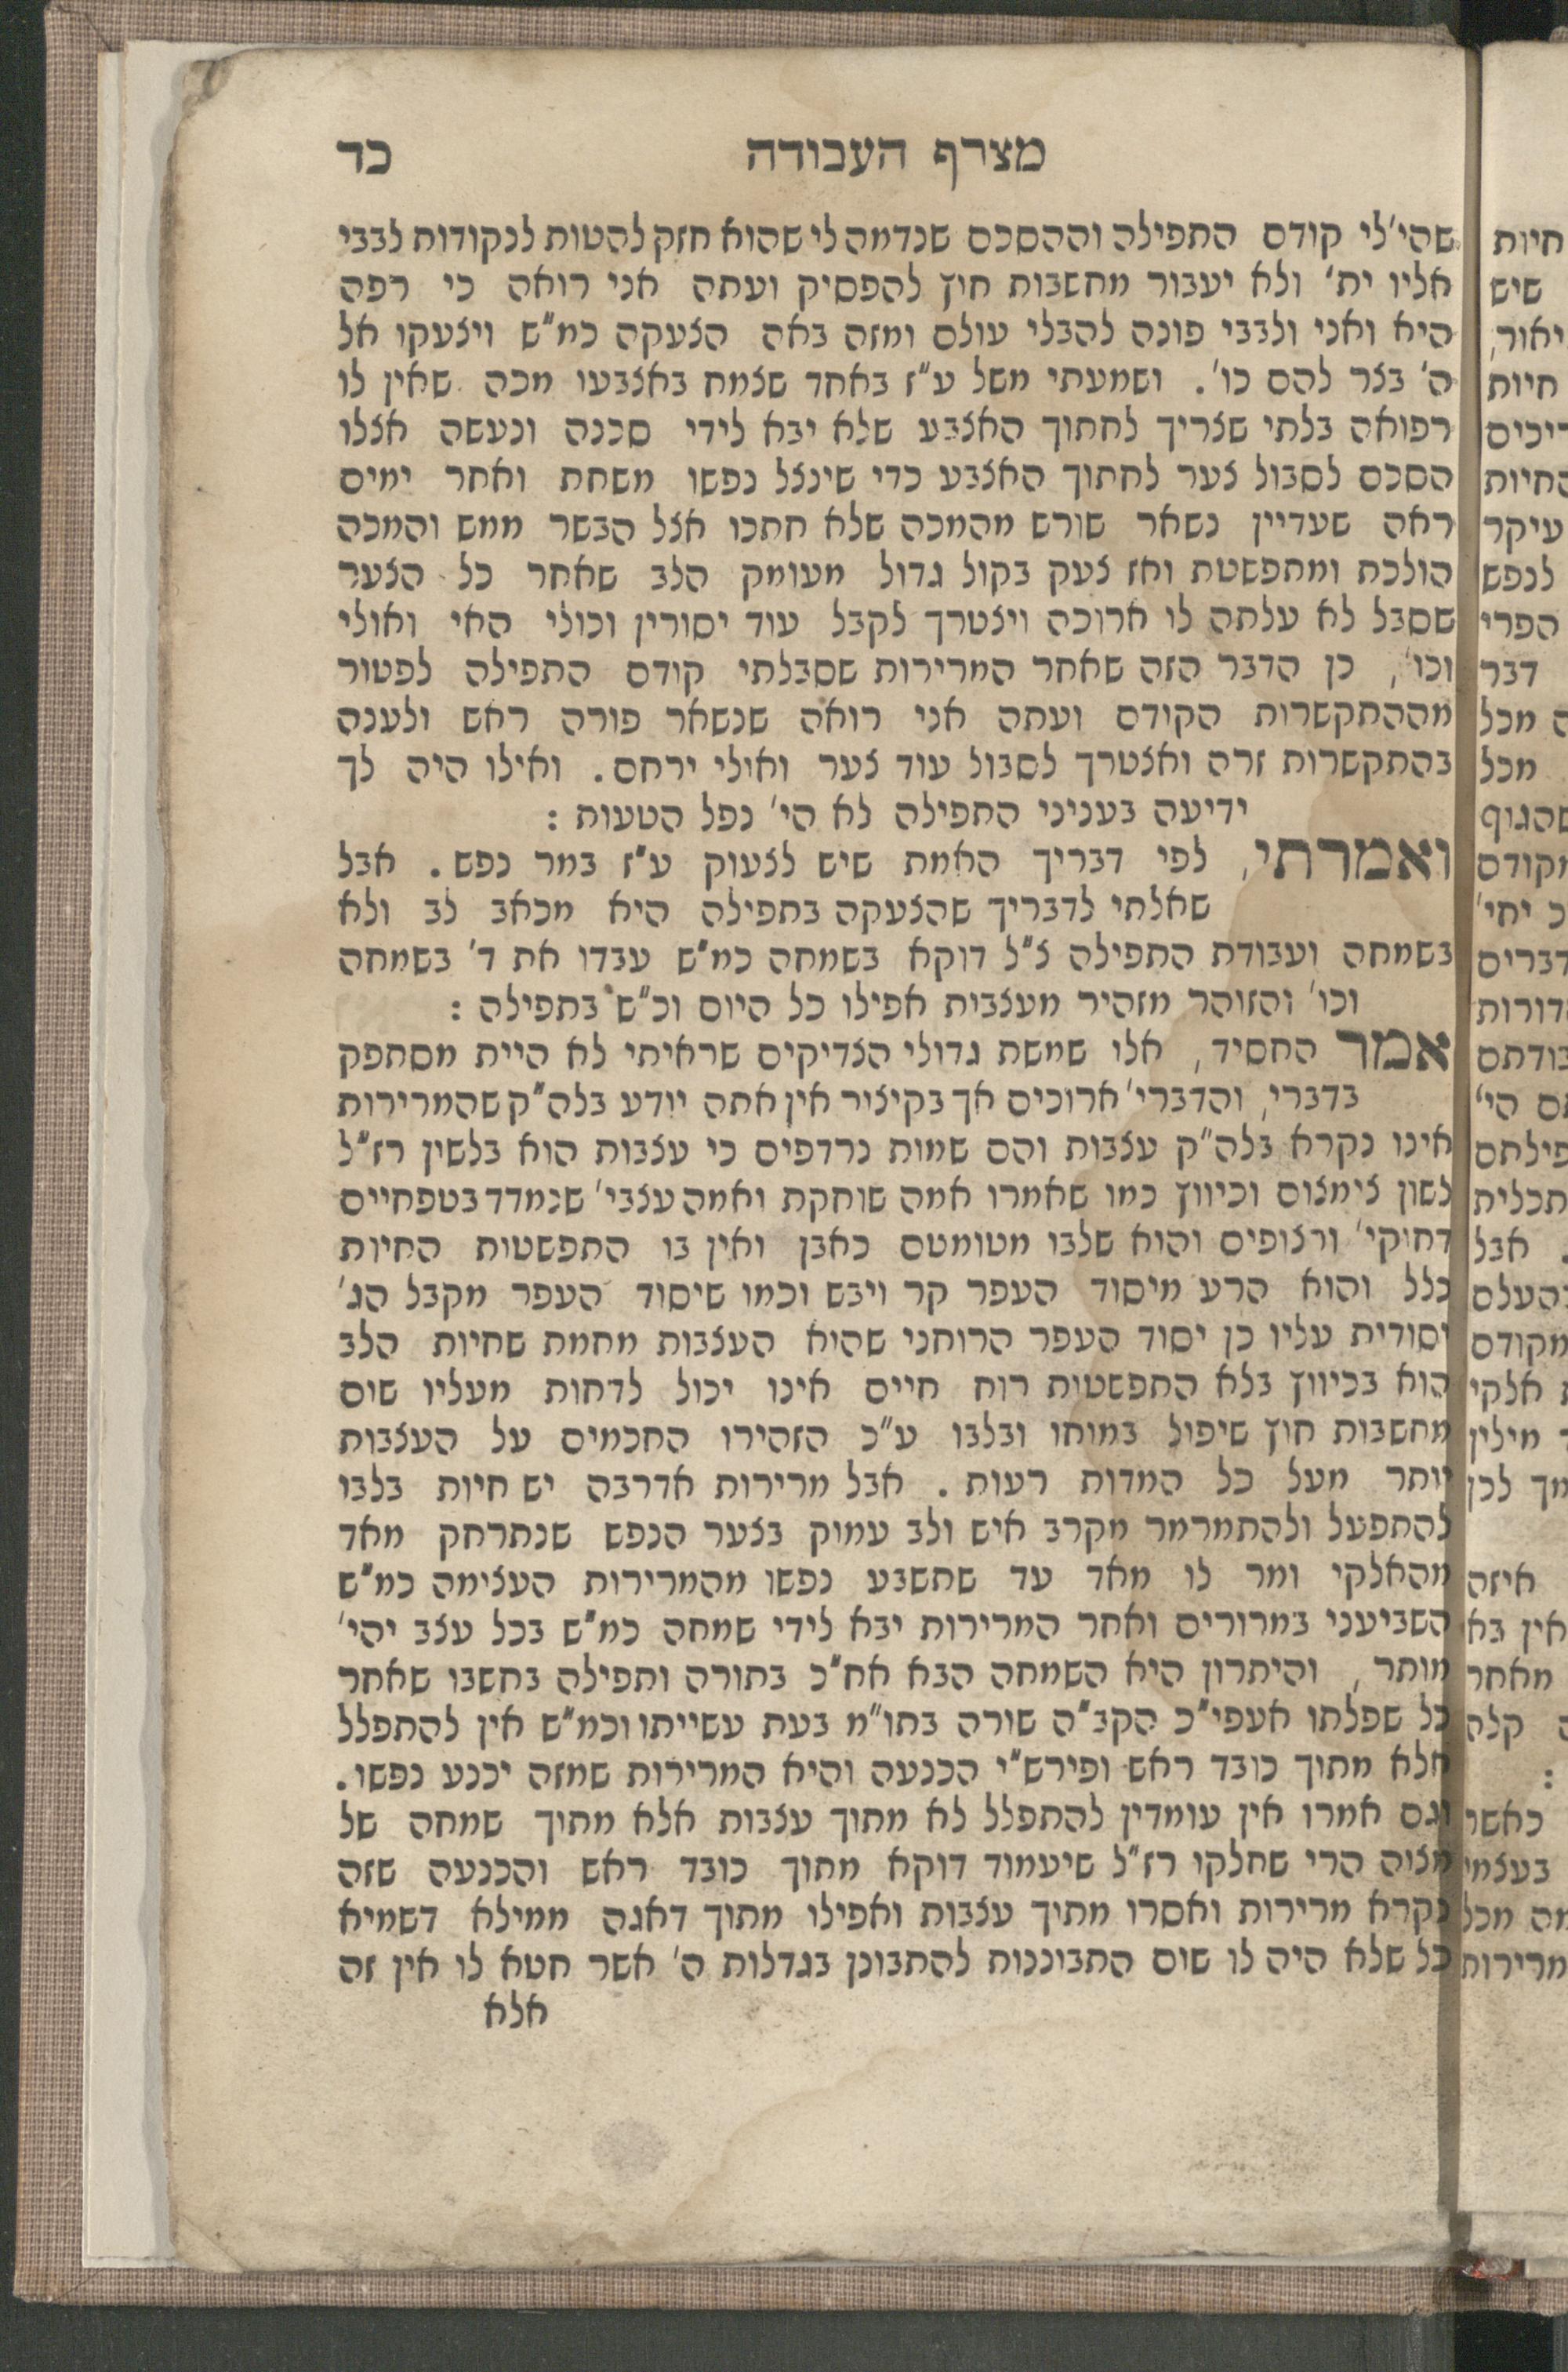 מצרף העבודה כד
שהי' לי קודם התפילה וההסכם שנדמה לי שהוא חזק להטות לנקודות לבבי
אליו ית' ולא יעבור מחשבות חוץ להפסיק ועתה אני רואה כי רפה
היא ואני ולבבי פונה להבלי עולם ומזה באה הצעקה כמ"ש ויצעקו אל
ה' בצר להם כו'. ושמעתי משל ע"ז באחד שצמח באצבעו מכה שאין לו
רפואה בלתי שצריך לחתוך האצבע שלא יבא לידי סכנה ונעשה אצלו
הסכם לסבול צער לחתוך האצבע כדי שינצל נפשו משחת ואחר ימים
ראה שעדיין נשאר שורש מהמכה שלא חתכו אצל הבשר ממש והמכה
הולכת ומתפשטת ואז צעק בקול גדול מעומק הלב שאחר כל הצער
שסבל לא עלתה לו ארוכה ויצטרך לקבל עוד יסורין וכולי האי ואולי
וכו', כן הדבר הזה שאחר המרירות שסבלתי קודם התפילה לפטור
מההתקשרות הקודם ועתה אני רואה שנשאר פורה ראש ולענה
בהתקשרות זרה ואצטרך לסבול עוד צער ואולי ירחם. ואילו היה לך
ידיעה בעניני התפילה לא הי' נפל הטעות :
ואמרתי, לפי דבריך האמת שיש לצעוק ע"ז במר נפש. אבל
שאלתי לדבריך שהצעקה בתפילה היא מכאב לב ולא
בשמחה ועבודת התפילה צ"ל דוקא בשמחה כמ"ש עבדו את ד' בשמחה
וכו' והזוהר מזהיר מעצבות אפילו כל היום וכ"ש בתפילה :
אמר החסיד, אלו שמשת גדולי הצדיקים שראיתי לא היית מסתפק
בדברי, והדברי' ארוכים אך בקיצור אין אתה יודע בלה"ק שהמרירות
אינו נקרא בלה"ק עצבות והם שמות נרדפים כי עצבות הוא בלשין רז"ל
לשון צימצום וכיווץ כמו שאמרו אמה שוחקת ואמה עצבי' שנמדד בטפחיים
דחוקי' ורצופים והוא שלבו מטומטם כאבן ואין בו התפשטות החיות
כלל והוא הרע מיסוד העפר קר ויבש וכמו שיסוד העפר מקבל הג'
יסודית עליו כן יסוד העפר הרוחני שהיא העצבות מחמת שחיות הלב
הוא בכיווץ בלא התפשטות רוח חיים אינו יכול לדחות מעליו שום
מחשבות חוץ שיפול במוחו ובלבו ע"כ הזהירו החכמים על העצבות
יותר מעל כל המדות רעות. אבל מרירות אדרבה יש חיות בלבו
להתפעל ולהתמרמר מקרב איש ולב עמוק בצער הנפש שנתרחק מאד
מהאלקי ומר לו מאד עד שתשבע נפשו מהמרירות העצימה כמ"ש
השביעני במרורים ואחר המרירות יבא לידי שמחה כמ"ש בכל עצב יהי'
מותר, והיתרון היא השמחה הבא אח"כ בתורה ותפילה בחשבו שאחר
כל שפלתו אעפי"כ הקב"ה שורה בתו"מ בעת עשייתו וכמ"ש אין להתפלל
אלא מתוך כובד ראש ופירש"י הכנעה והיא המרירות שמזה יכנע נפשו.
וגם אמרו אין עומדין להתפלל לא מתוך עצבות אלא מתוך שמחה של
מצוה הרי שחלקו רז"ל שיעמוד דוקא מתוך כובד ראש והכנעה שזה
נקרא מרירות ואסרו מתיך עצבות ואפילו מתוך דאגה ממילא דשמיא
כל שלא היה לו שום התבוננות להתבונן בגדלות ה' אשר חטא לו אין זה
אלא
חיות
שיש
יאור,
חיות
עיקר
לנפש
הפרי
דבר
מכל
מכל
אבל
אלקי
מילין
לכן
איזה
אין בא
מאחר
קלה
:
כאשר
בעצמי
מכל
מרירות